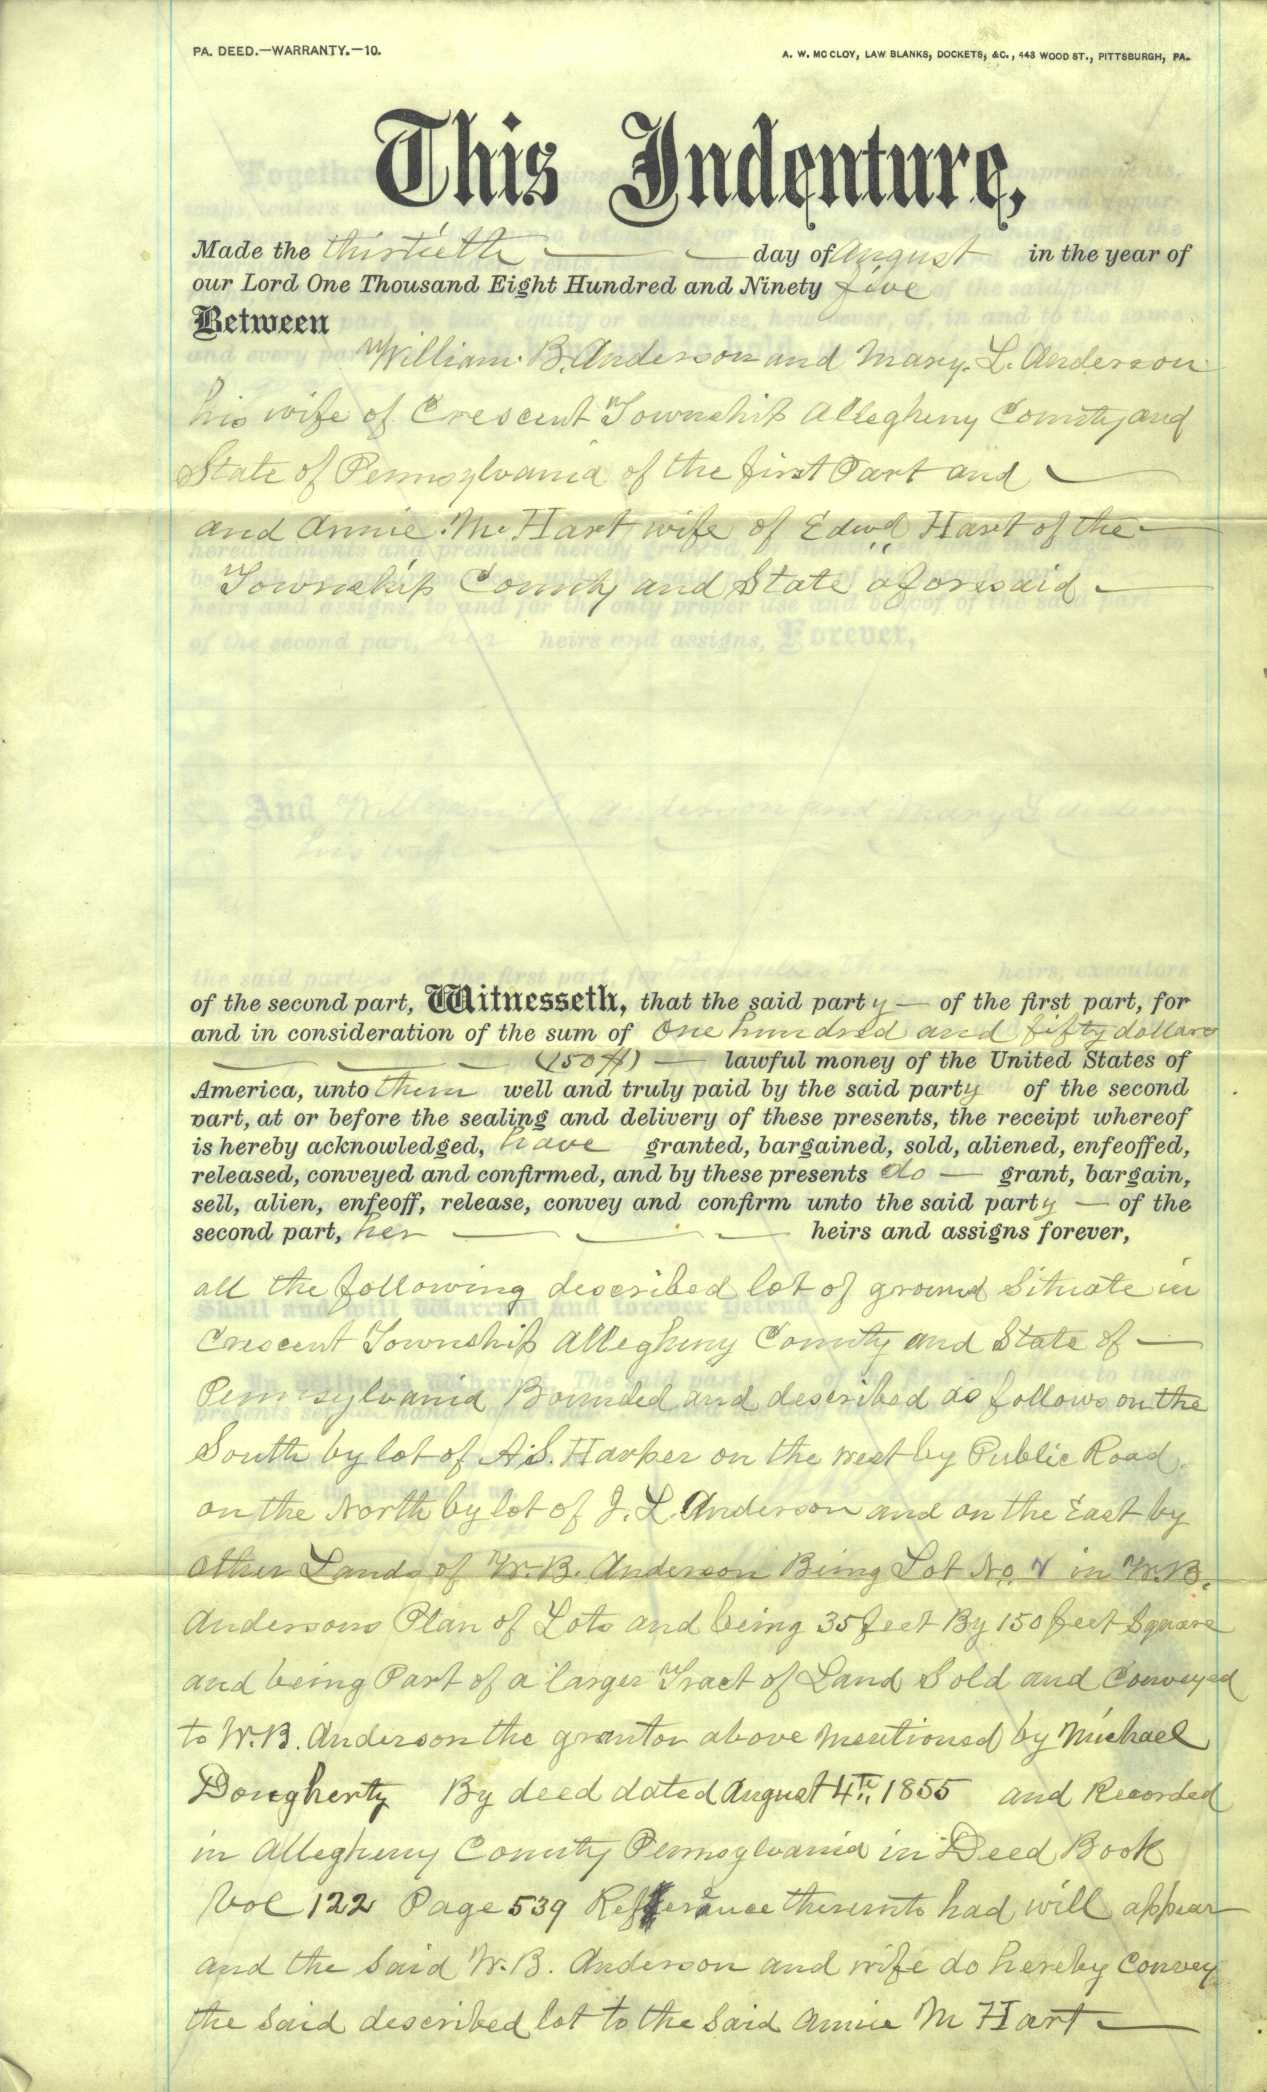 PA. DEED.—WARRANTY.—10.
A. W. MC CLOY, LAW BLANKS, DOCKETS, &C., 443 WOOD ST., PITTSBURGH, PA.
This Indenture,
Made the thirtieth day of August in the year of
our Lord One Thousand Eight Hundred and Ninety five
Between
William B. Anderson and Mary. L. Anderson
his wife of Crescent Township Allegheny County and
State of Pennsylvania of the first Part and
and Annie. M. Hart wife of Edwd Hart of the
Township County and State aforesaid
of the second part, Witnesseth, that the said party of the first part, for
and in consideration of the sum of One hundred and fifty dollars
(150 lawful money of the United States of
America, unto them well and truly paid by the said party of the second
part, at or before the sealing and delivery of these presents, the receipt whereof
is hereby acknowledged, have granted, bargained, sold, aliened, enfeoffed,
released, conveyed and confirmed, and by these presents do grant, bargain,
sell, alien, enfeoff, release, convey and confirm unto the said party of the
second part, her heirs and assigns forever,
all the following described lot of ground Situate in
Crescent Township Allegheny County and State of
Pennsylvania Bounded and described as follows on the
South by lot of A.S. Harper on the west by Public Road.
on the North by lot of J. L. Anderson and on the East by
other Lands of W. B. Anderson Being Lot No. in W. B.
Andersons Plan of Lots and being 35 feet By 150 feet Square
and being Part of a larger Tract of Land Sold and Conveyed
to W. B. Anderson the grantor above mentioned by Michael
Dougherty By deed dated August 4th 1855 and Recorded
in Allegheny County Pennsylvania in Deed Book
Vol 122 Page 539 Reference thereunto had will appear
and the Said W. B. Anderson and wife do hereby Convey
the said described lot to the Said Annie M Hart